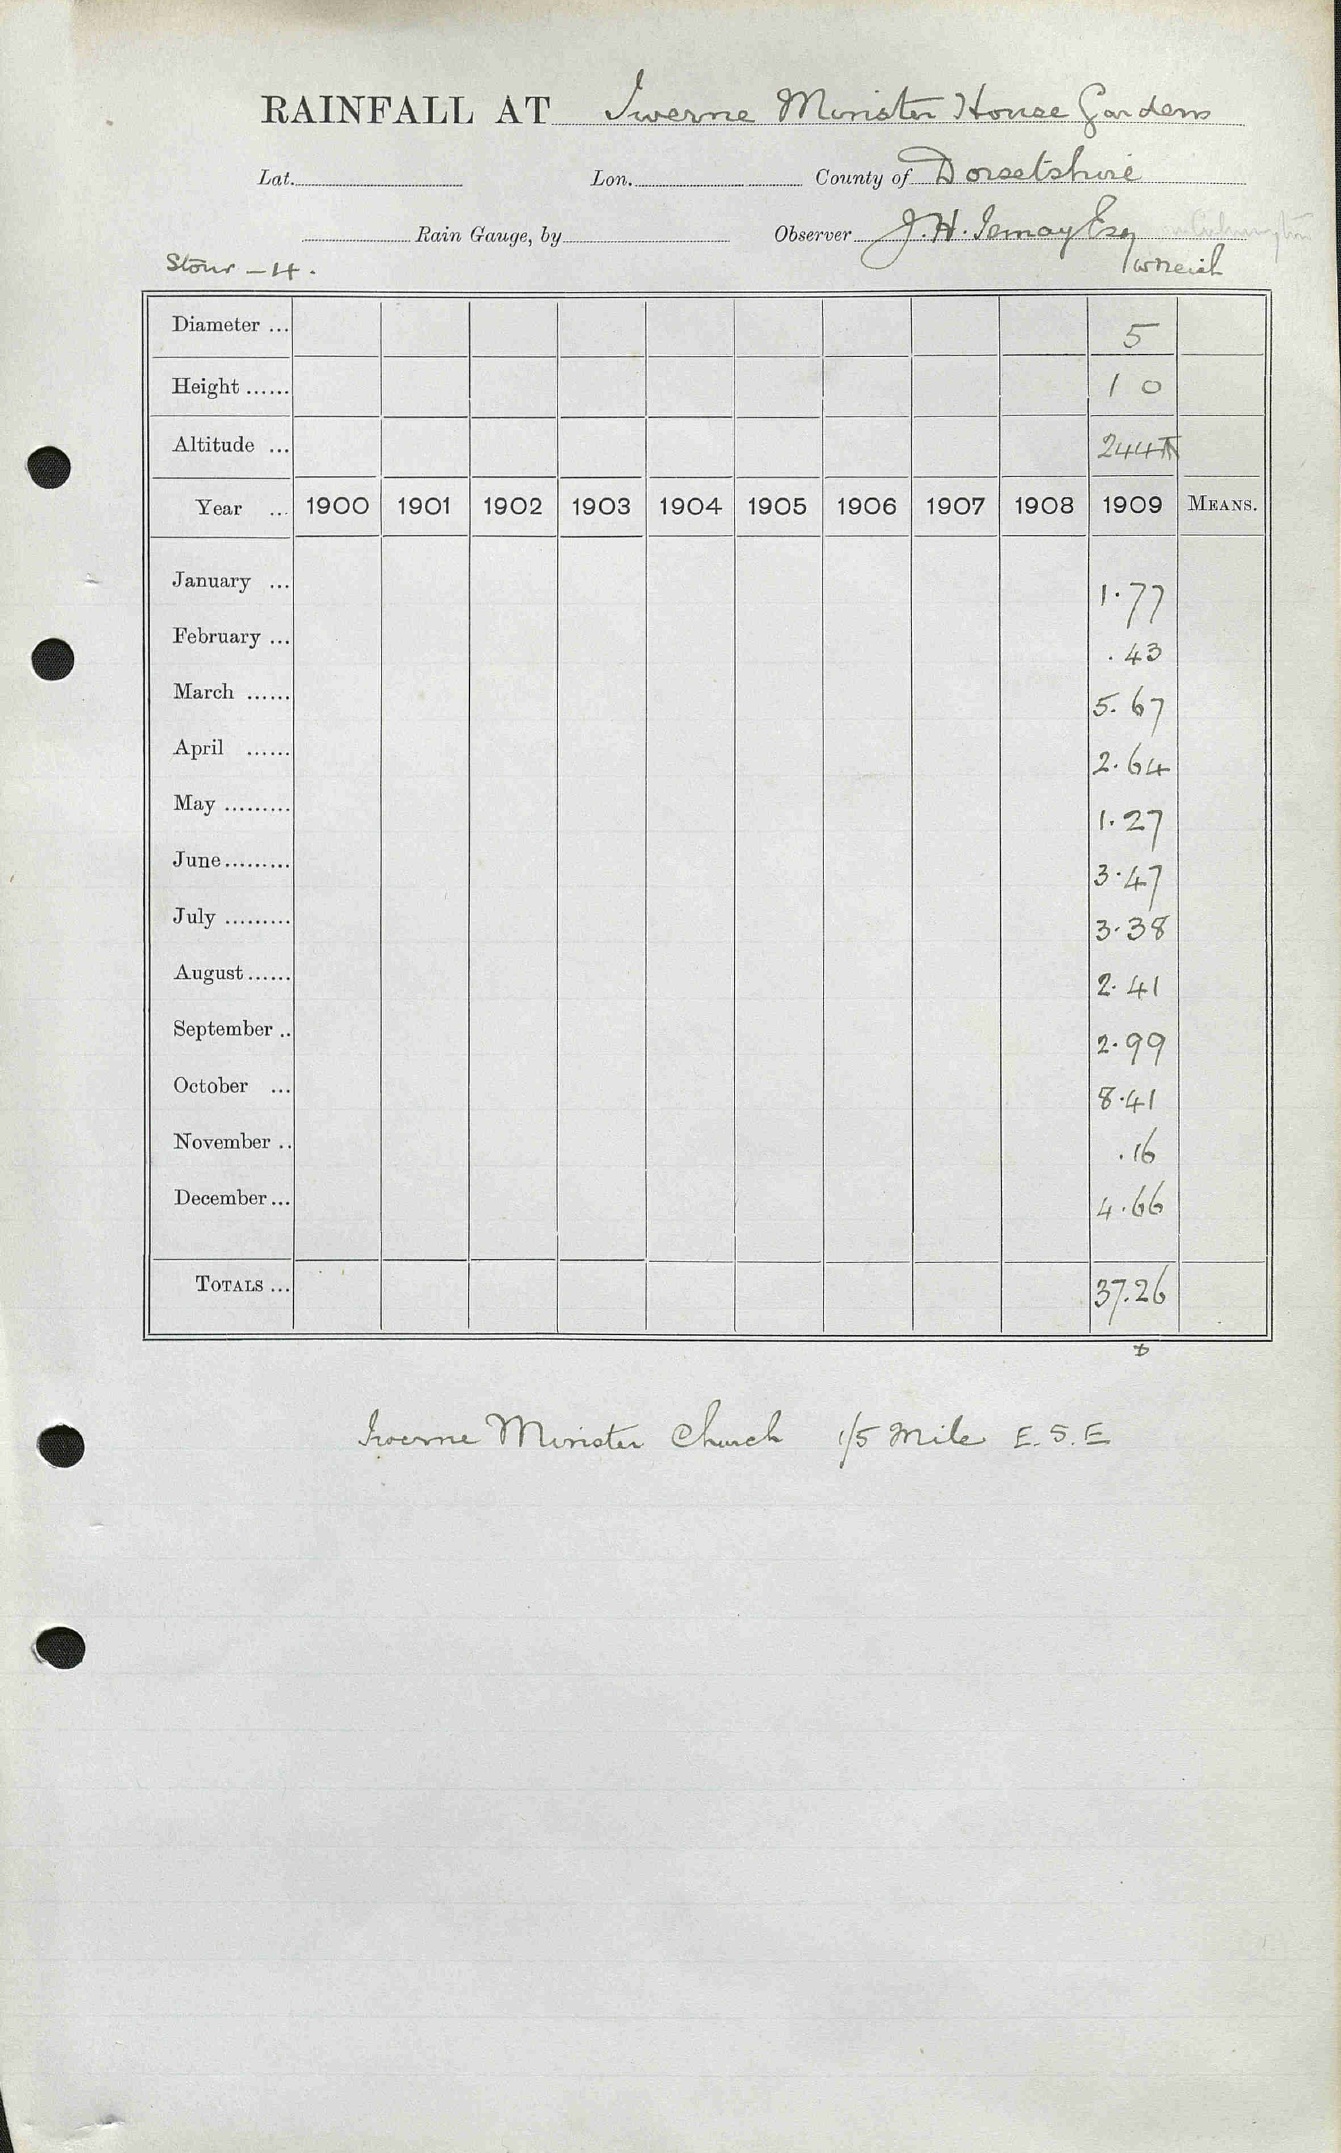 RAINFALL AT Iwerne Minster House Gardens
Lat. Lon. County of Dorsetshire
Rain Gauge, by Observer J. H. Ismay Esq
Stour - 4.
Diameter ... 5
Height ...... 1 0
Altitude ... 244 ft
Year ... 1900 1901 1902 1903 1904 1905 1906 1907 1908 1909 MEANS.
January ... 1.77
February ... .43
March ...... 5.67
April ...... 2.64
May ......... 1.27
June ......... 3.47
July ......... 3.38
August ...... 2.41
September .. 2.99
October ... 8.41
November .. .16
December ... 4.66
TOTALS ... 37.26
Iwerne Minster Church 1/5 Mile E.S.E